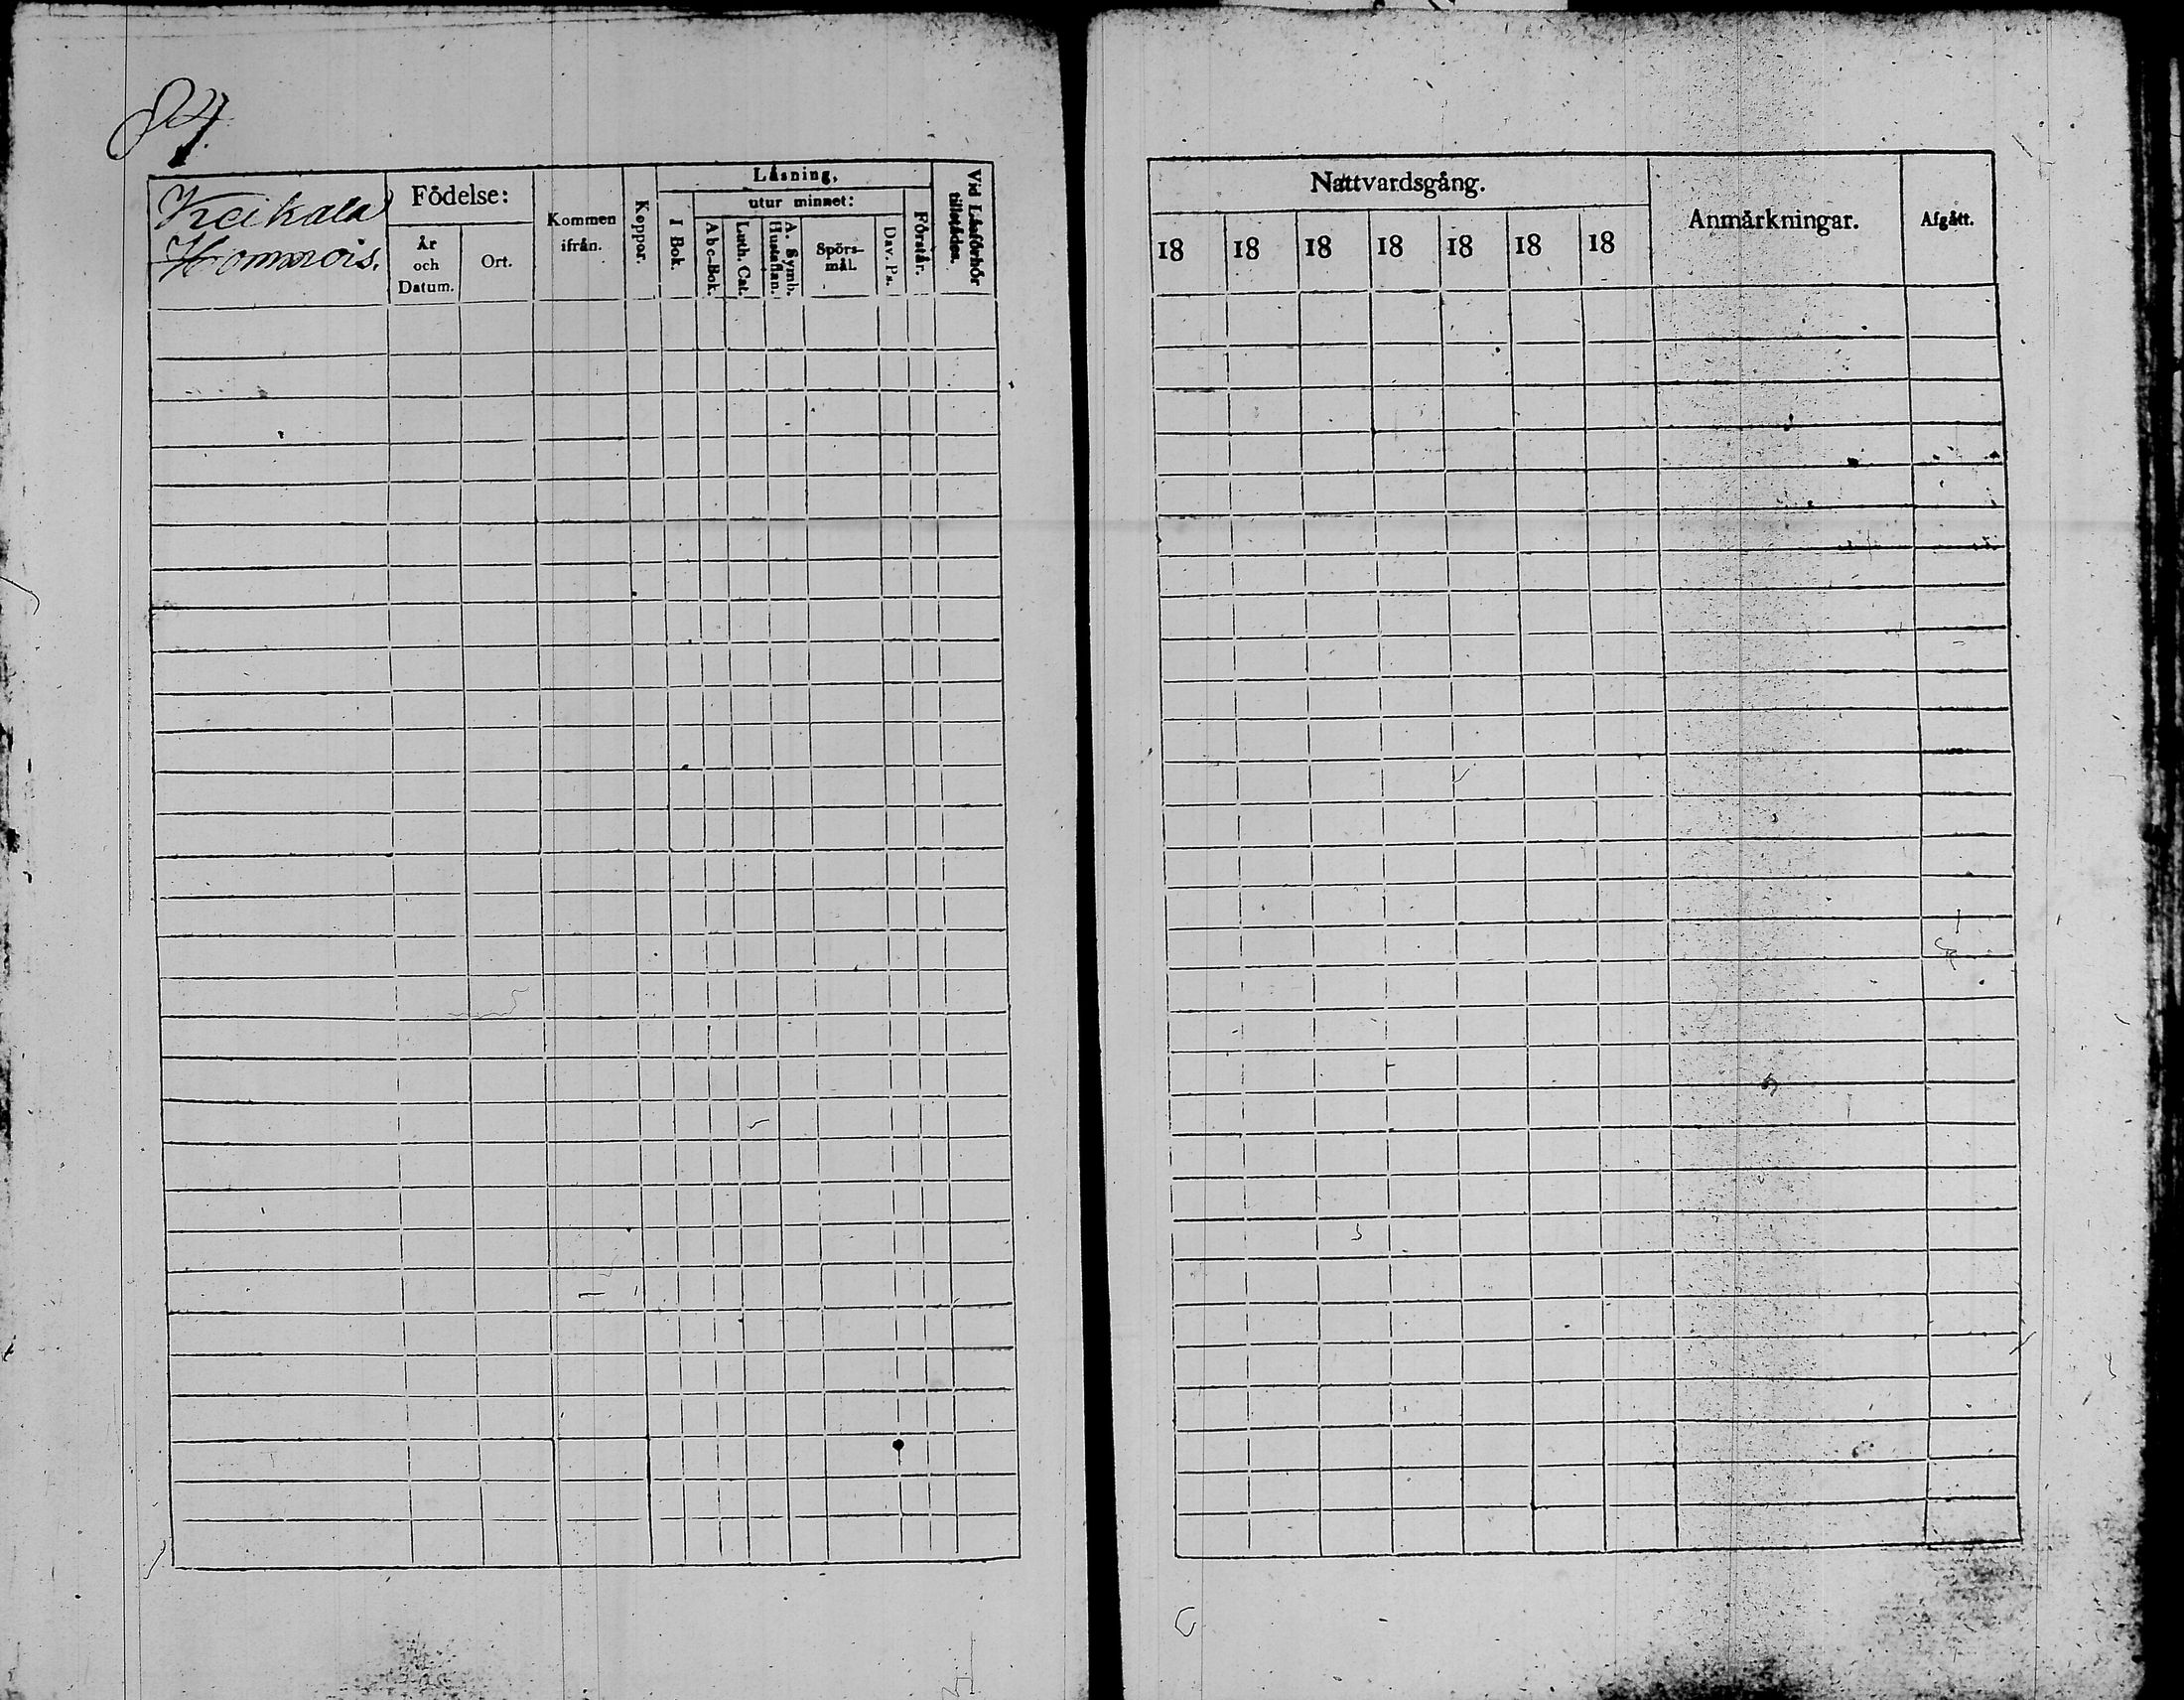 84.
Keikala
Hommois.
Födelse:
År
och
Datum.
Ort.
Kommen
ifrån.
Koppor.
Läsning,
I Bok.
utur minnet:
Abc-Bok.
Luth. Cat.
A. Symb.
Hustaflan.
Spörs-
mål.
Dav. Ps.
Förstår.
Vid Läsförhör
tillstädes.
Nattvardsgång.
18 18 18 18 18 18 18
Anmärkningar.
Afgått.